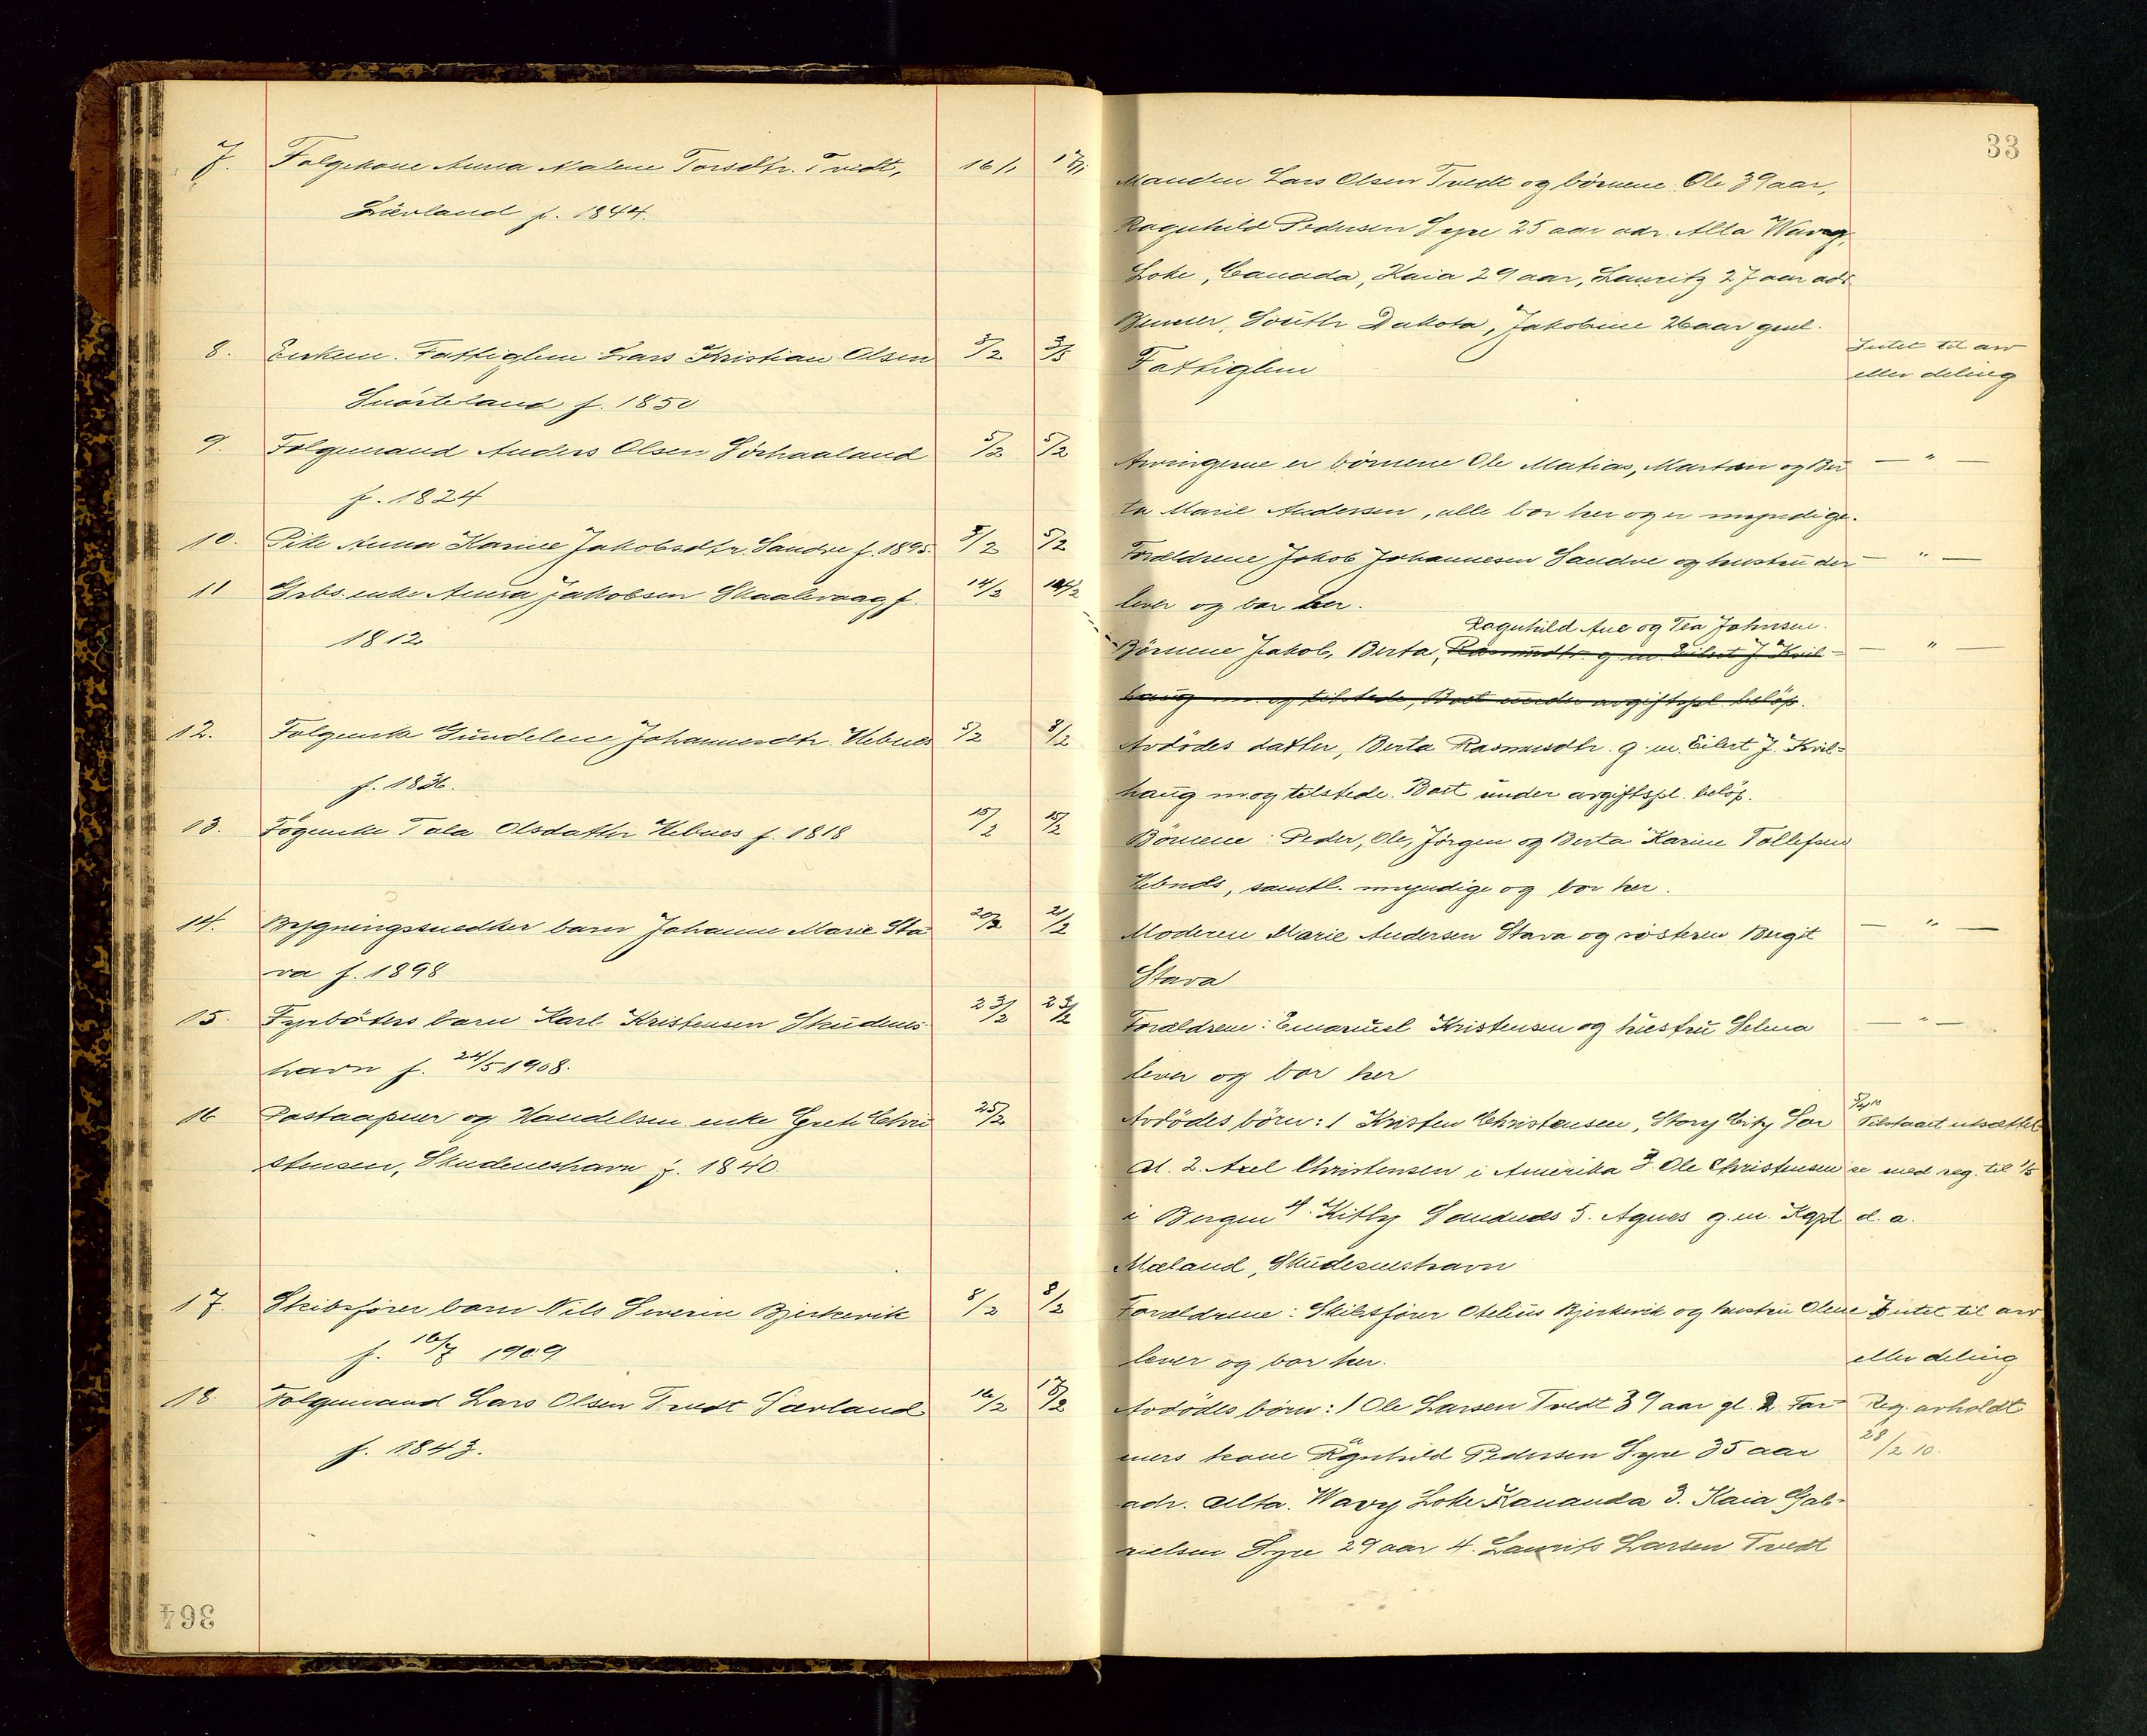 33
7. Folgekone Anna Malene Torsdtr. Tvedt, 16/1 17/1
Sævland f. 1844.
Manden Lars Olsen Tvedt og børnene Ole 39 aar,
Ragnhild Pedersen Syre 25 aar adr. Alta Wavy,
Loke, Canada, Kaia 29 aar, Lauritz 27 aar adr
South Dakota, Jakobine 26 aar
8. Enkem. Fattiglem Lars Kristian Olsen 3/2 3/3
Snørteland f. 1850
Fattiglem
Intet til arv
eller deling
9. Folgemand Anders Olsen Sørhaaland 5/2 5/2
f. 1824
Arvingerne er børnene Ole Matias, Martin og Ber — " —
ta Marie Andersen, alle bor her og er myndige.
10. Pike Anna Karine Jakobsdtr. Sandve f. 1895. 5/2 5/2
Forældrene Jakob Johannesen Sandve og hustru der — " —
lever og bor her.
11 Grbs. enke Anna Jakobsen Skaalevaag f. 14/2 14/2
1812
Ragnhild Ane og Tea Johnsen.
Børnene Jakob, Berta, Rasmusdtr. g. m. Eilert J. Kvil- — " —
haug m. og tilstede, Boet under avgiftspl. beløp.
12. Folgeenke Gundelene Johannesdtr. Hebnes 5/2 8/2
f. 1836.
Avdødes datter, Berta Rasmusdtr. g. m. Eilert J. Kvil=
haug m. og tilstede. Boet under avgiftspl. beløp.
13. Føgeenke Tala Olsdatter Hebnes f. 1818 15/2 15/2
Børnene: Peder, Ole, Jørgen og Berta Karine Tollefsen
Hebnes, samtl. myndige og bor her.
14. Bygningssnedker barn Johanne Marie Sta 20/2 21/2
va f. 1898
Moderen Marie Andersen Stava og søsteren Bergit — " —
Stava
15. Fyrbøters barn Karl Kristensen Skudenes- 23/2 23/2
havn f. 24/5 1908.
Forældrene: Emanuel Kristensen og hustru Selma — " —
lever og bor her
16 Postaapner og Handelsm. enke Grete Chri 25/2
stensen, Skudeneshavn f. 1840
Avdødes børn: 1 Kristen Christensen, Story City Sor
Tilstaaet utsættel
al. 2. Axel Christensen i Amerika 3. Ole Christensen se med reg. til 1/5
i Bergen 4. Kitty Sandnes 5. Agnes g. m. Kapt d. a.
Mæland, Skudesneshavn
17. Skibsfører barn Nils Severin Bjerkevik 8/2 8/2
f. 16/7 1909
Forældrene: Skibsfører Otelius Bjerkevik og hustru Olene Intet til arv
lever og bor her. eller deling
18. Folgemand Lars Olsen Tvedt Sævland 16/2 17/2
f. 1843.
Avdødes børn: 1 Ole Larsen Tvedt 39 aar gl. 2. Far- Reg. avholdt
mers kone Ragnhild Pedersen Syre 35 aar 28/2 10.
adr. Alta. Wavy Loke Kananda 3. Kaia Gab-
rielsen Syre 29 aar 4. Laurits Larsen Tvedt
364